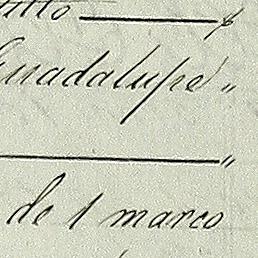 Guadalupe "
"
de 1 marco